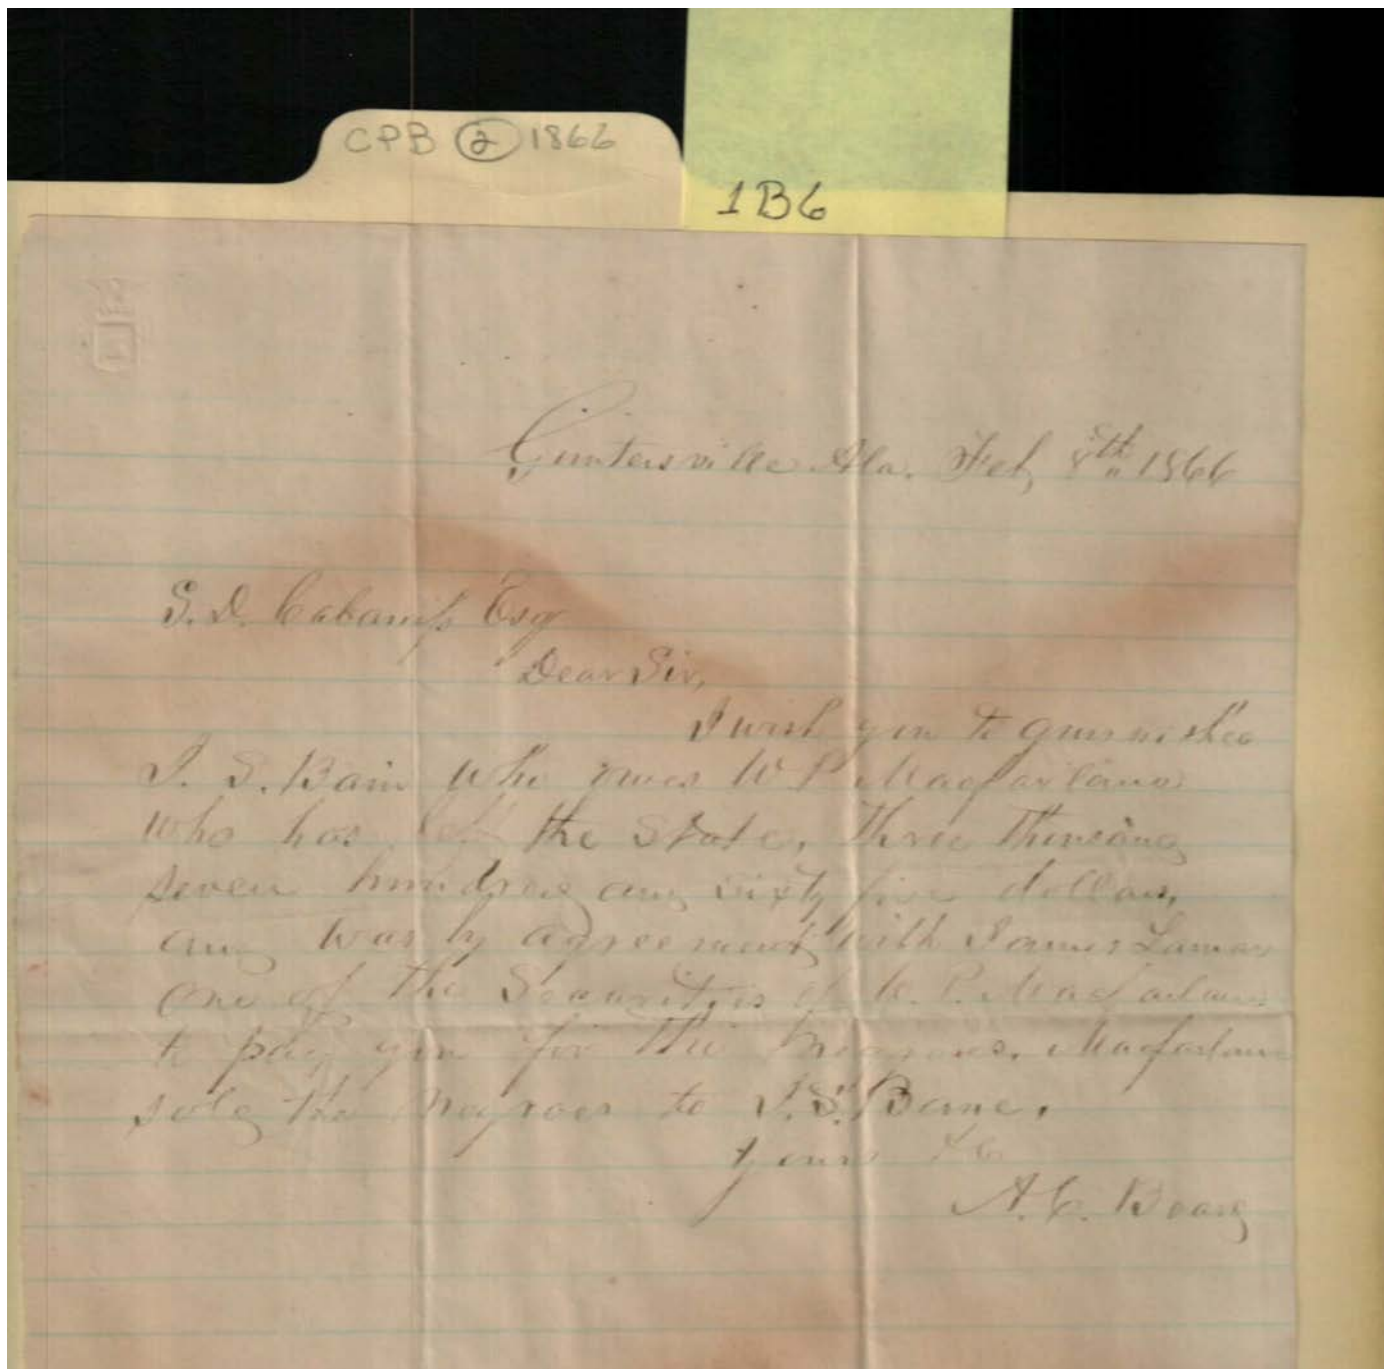 CPB 2 1866
1B6
Guntersville Ala. Feb, 8th 1866
S. D. Cabaniss Esq
Dear Sir,
I wish you to garnishee
J. S. Bain who owes W P Macfarlane
who has left the State, three thousand
seven hundred and sixty five dollars,
and was by agreement with James Lamar
one of the Securities of W. P. Macfarlane
to pay you for the Negroes. Macfarlane
sold the Negroes to J. S. Bane.
Yours &c
A. C. Beard